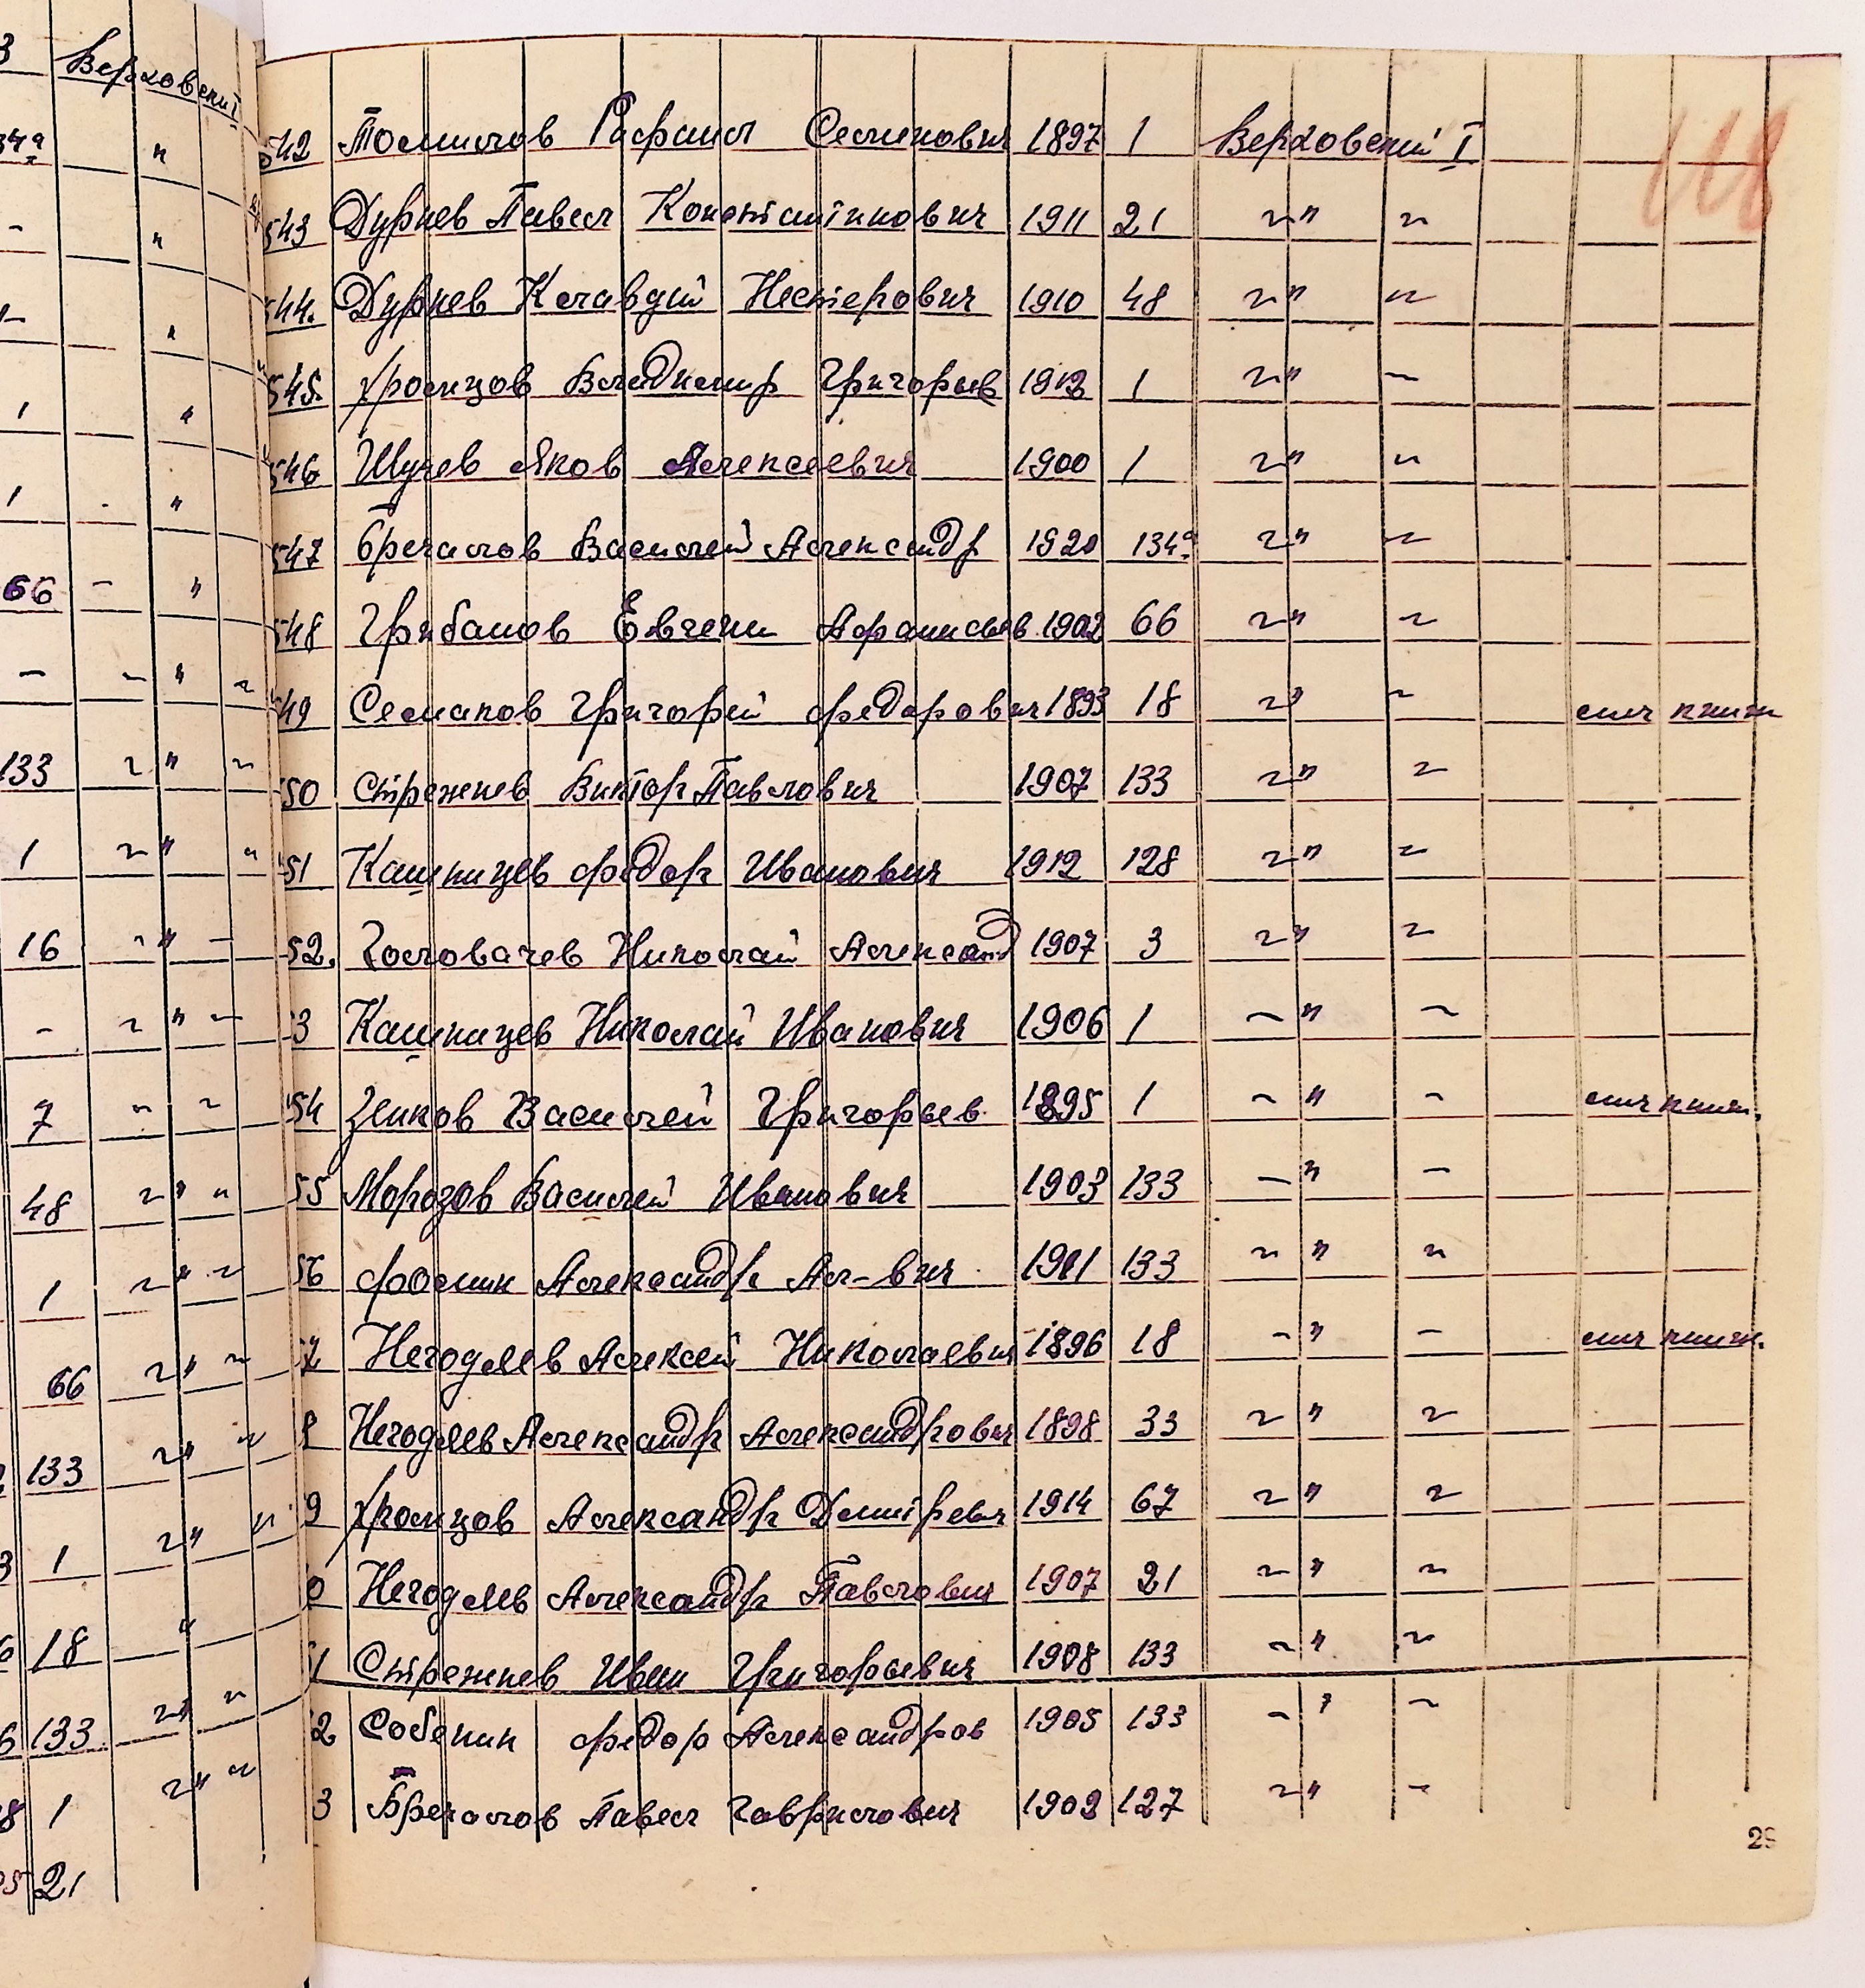 3 Верховский I
34а "
- "
- "
1 "
1 "
66 - "
- - " -
133 - " -
1 - " -
16 - " -
- - " -
7 - -
48 - " -
1 - " -
66 - " -
133 - " -
3 1 - " -
6 18 "
6 133 - " -
8 1 - " -
05 21
118
542 Рафаил Семенович 1897 1 Верховский I
543 Дурнев Павел Константинович 1911 21 - " -
544. Дурнев Клавдий Нестерович 1910 48 - " -
545. Хромцов Владимир Григорьев 1912 1 - " -
546 Шучев Яков Алексеевич 1900 1 - " -
547 Бречалов Василей Александр 1920 134а - " -
548 Грибанов Евгени Афанисьев 1902 66 - " -
549 Семаков Григорей Федорович 1893 18 - " -
50 Стрежнев Виктор Павлович 1907 133 - " -
51 Кашницев Федор Иванович 1912 128 - " -
52. Головачев Николай Александ 1907 3 - " -
3 Кашницев Николай Иванович 1906 1 - " -
54 Зенков Василей Григорьев 1895 1 - " -
55 Морозов Василей Иванович 1903 133 - " -
56 Фомин Александр Ал-вич 1901 133 - " -
57 Негодяев Алексей Николаевич 1896 18 - " -
8 Негодяев Александр Александрович 1898 33 - " -
9 Хромцов Александр Дмитревич 1914 67 - " -
0 Негодяев Александр Павлович 1907 21 - " -
1 Стрежнев Иван Григорьевич 1908 133 - " -
2 Собенин Федор Александров 1905 133 - " -
3 Бречалов Павел Гаврилович 1902 127 - " -